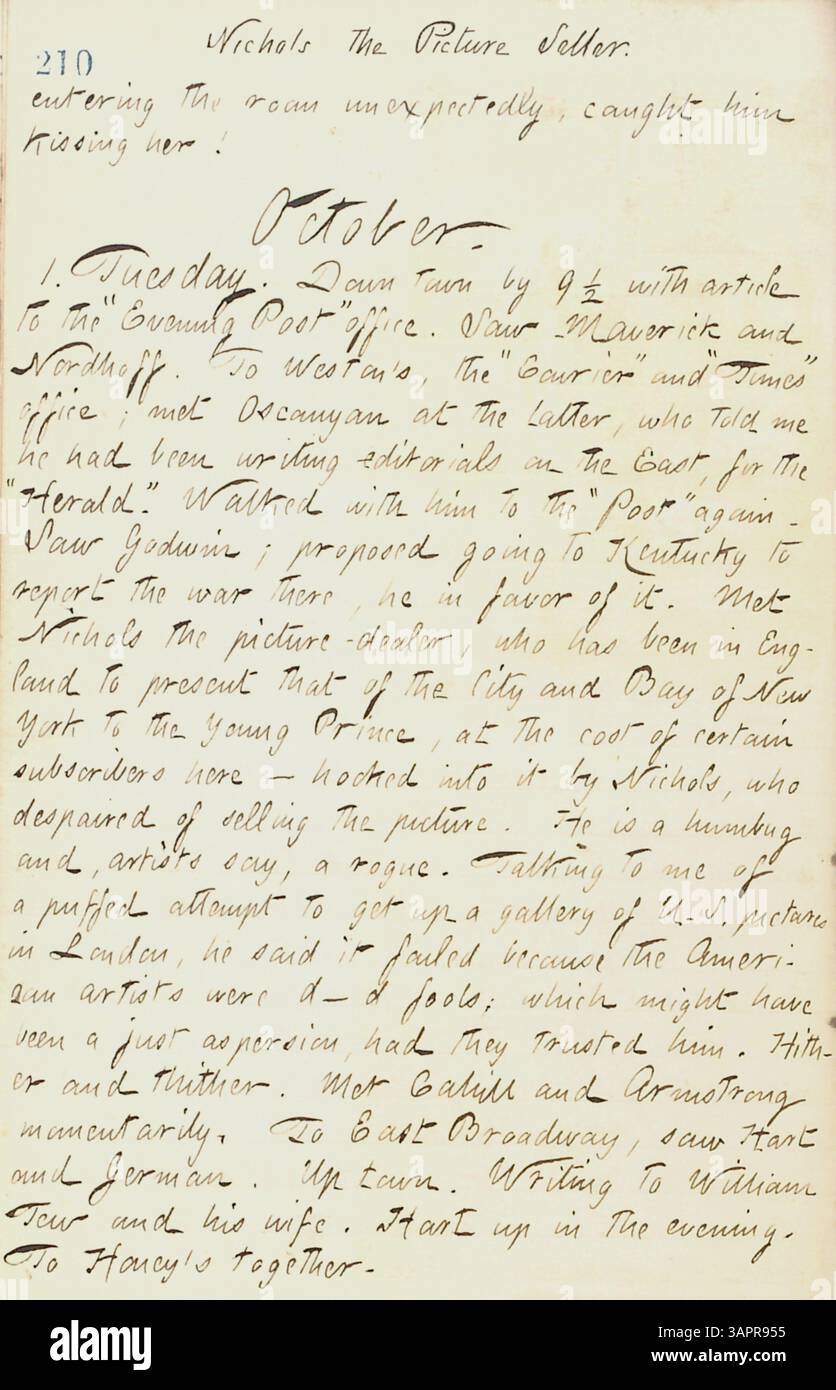 Nichols the Picture Seller.
210
entering the room unexpectedly, caught him
kissing her!
October.
1. Tuesday. Down town by 9 ½ with article
to the "Evening Post" office. Saw Maverick and
Nordhoff. To Weston's, the "Courier" and "Times"
office; met Oscanyan at the latter, who told me
he had been writing editorials on the East, for the
"Herald." Walked with him to the "Post" again.
Saw Godwin; proposed going to Kentucky to
report the war there, he in favor of it. Met
Nichols the picture-dealer, who has been in Eng-
land to present that of the City and Bay of New
York to the Young Prince, at the cost of certain
subscribers here — hooked into it by Nichols, who
despaired of selling the picture. He is a humbug
and, artists say, a rogue. Talking to me of
a puffed attempt to get up a gallery of U.S. pictures
in London, he said it failed because the Ameri-
can artists were d—d fools; which might have
been a just aspersion, had they trusted him. Hith-
er and thither. Met Cahill and Armstrong
momentarily. To East Broadway, saw Hart
and German. Up town. Writing to William
Tew and his wife. Hart up in the evening.
To Honey's together.
alamy
Image ID: 3APR955
www.alamy.com